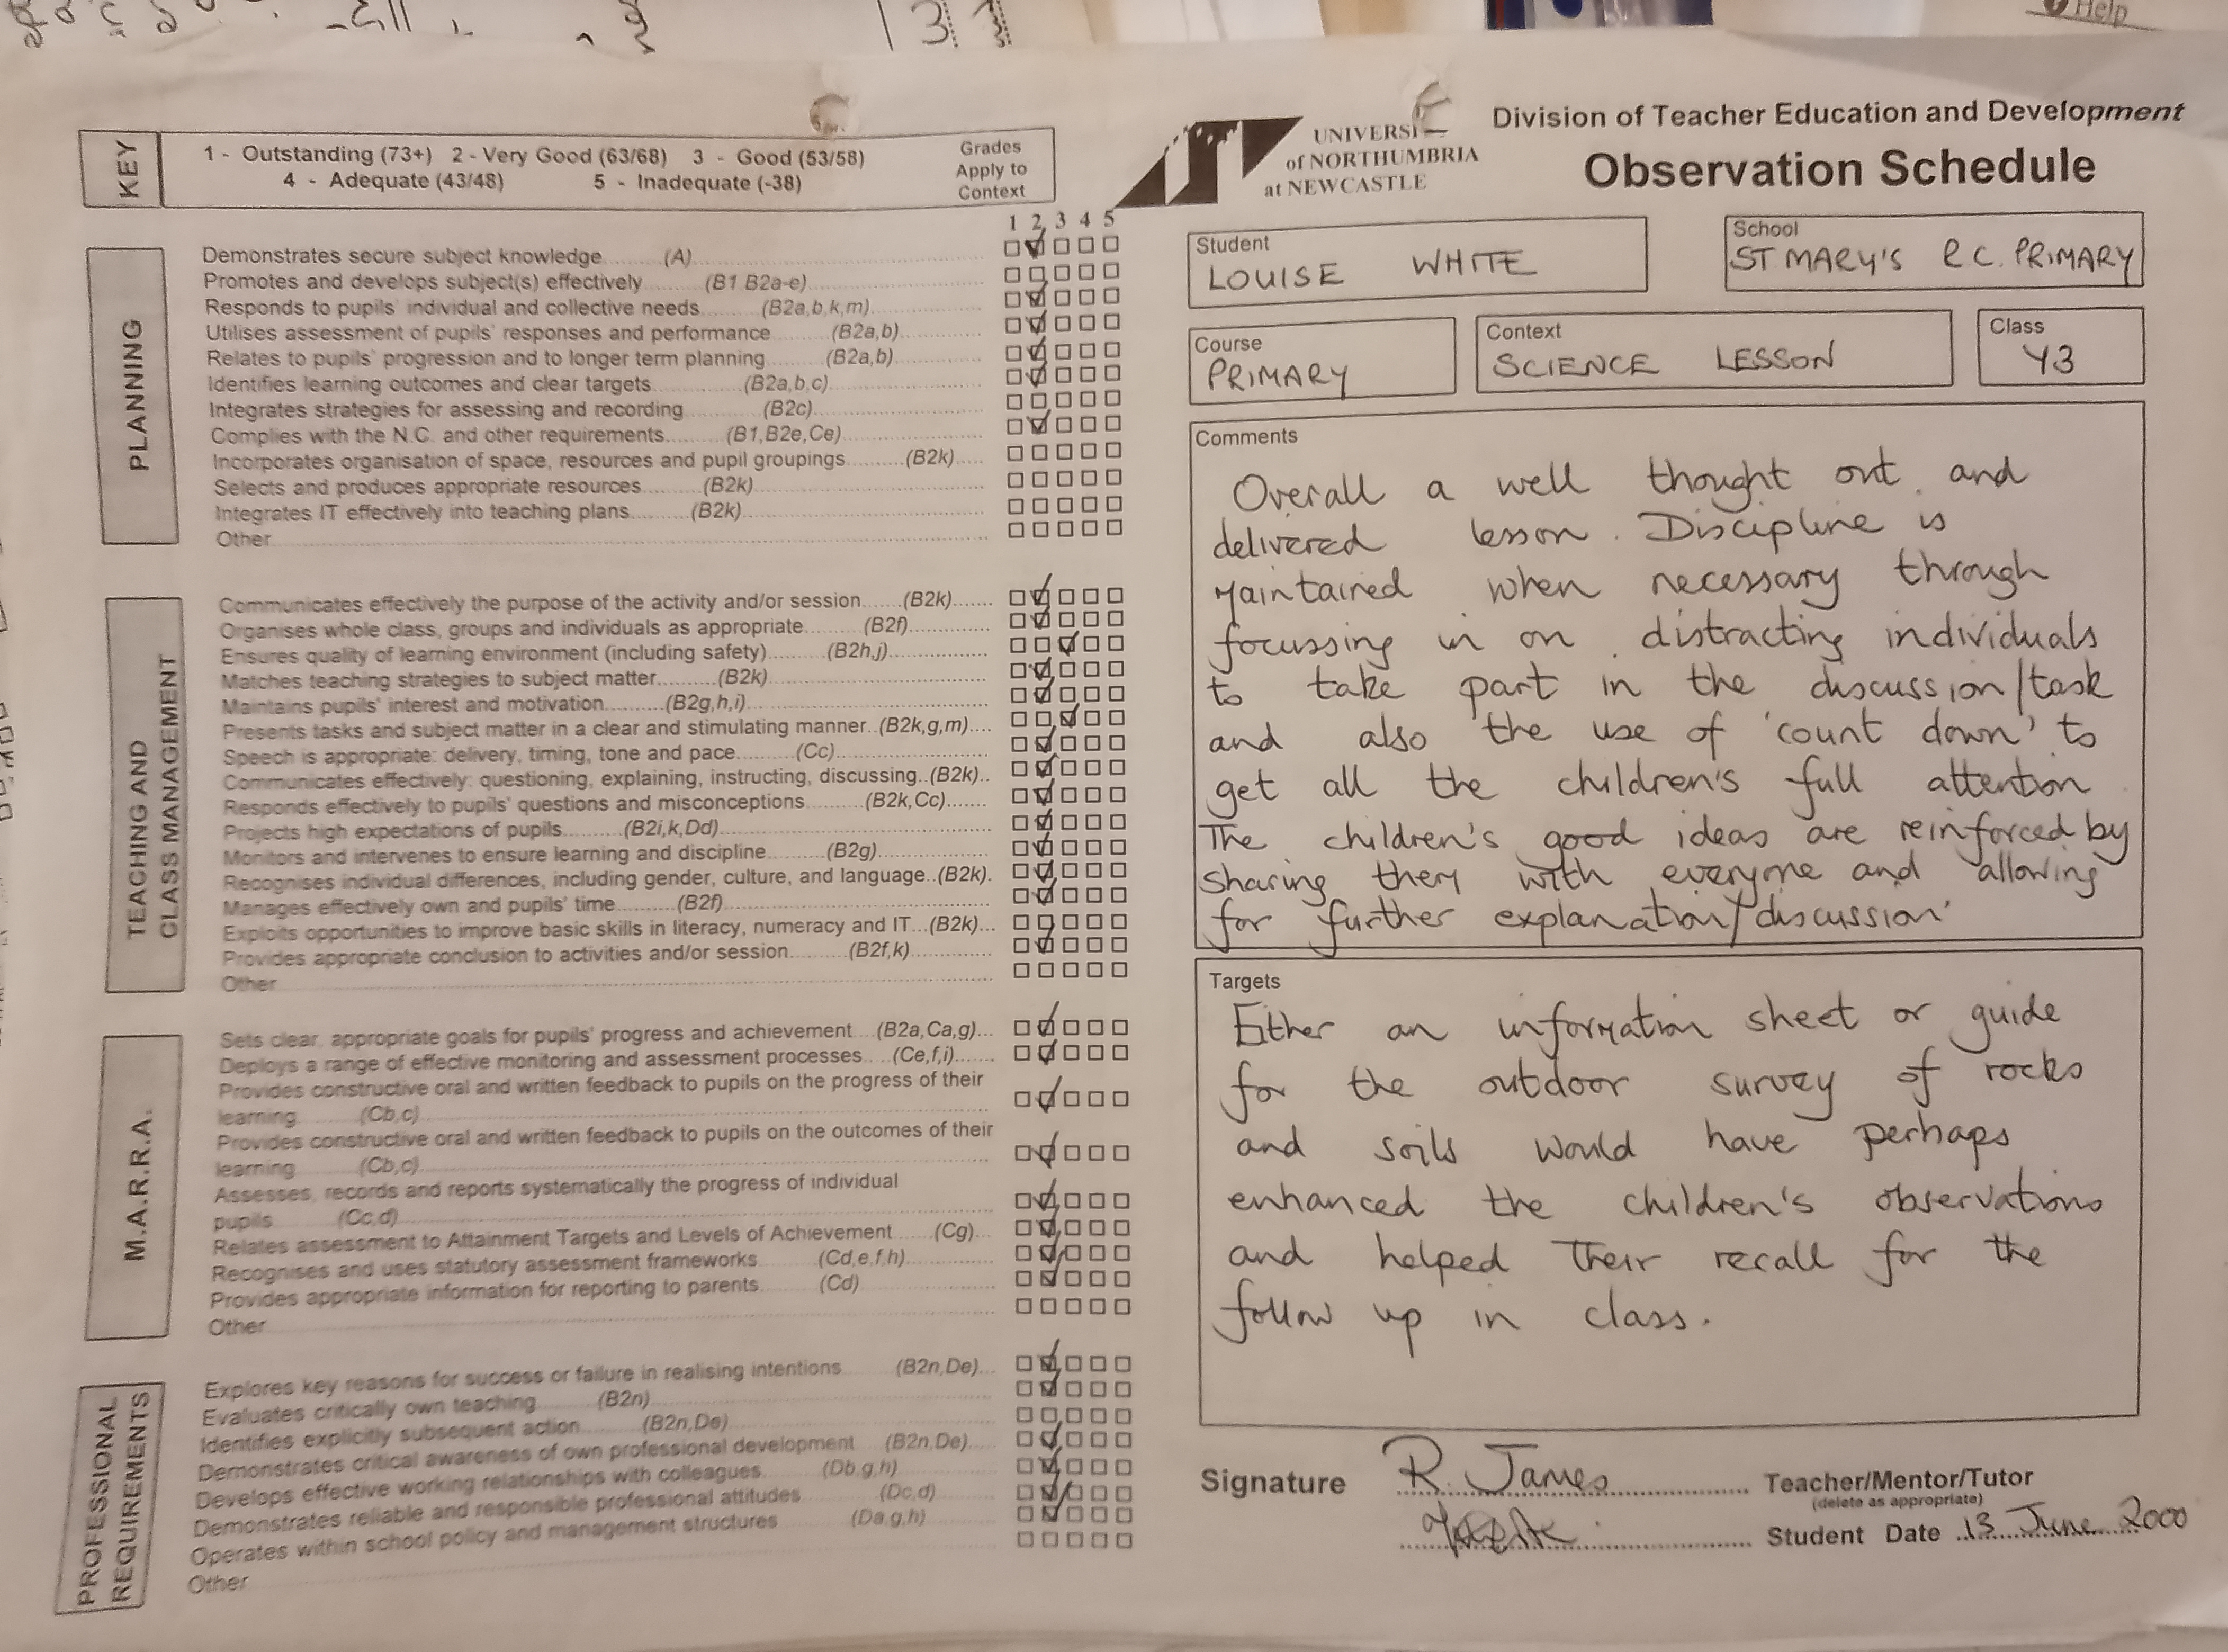 Help
KEY
1 - Outstanding (73+) 2 - Very Good (63/68) 3 - Good (53/58)
4 - Adequate (43/48) 5 - Inadequate (-38)
Grades
Apply to
Context
1 2 3 4 5
PLANNING
Demonstrates secure subject knowledge (A)
Promotes and develops subject(s) effectively (B1 B2a-e)
Responds to pupils' individual and collective needs (B2a,b,k,m)
Utilises assessment of pupils' responses and performance (B2a,b)
Relates to pupils' progression and to longer term planning (B2a,b)
Identifies learning outcomes and clear targets (B2a,b,c)
Integrates strategies for assessing and recording (B2c)
Complies with the N.C. and other requirements (B1,B2e,Ce)
Incorporates organisation of space, resources and pupil groupings (B2k)
Selects and produces appropriate resources (B2k)
Integrates IT effectively into teaching plans (B2k)
Other
TEACHING AND
CLASS MANAGEMENT
Communicates effectively the purpose of the activity and/or session (B2k)
Organises whole class, groups and individuals as appropriate (B2f)
Ensures quality of learning environment (including safety) (B2h,j)
Matches teaching strategies to subject matter (B2k)
Maintains pupils' interest and motivation (B2g,h,i)
Presents tasks and subject matter in a clear and stimulating manner (B2k,g,m)
Speech is appropriate: delivery, timing, tone and pace (Cc)
Communicates effectively: questioning, explaining, instructing, discussing (B2k)
Responds effectively to pupils' questions and misconceptions (B2k,Cc)
Projects high expectations of pupils (B2i,k,Dd)
Monitors and intervenes to ensure learning and discipline (B2g)
Recognises individual differences, including gender, culture, and language (B2k)
Manages effectively own and pupils' time (B2f)
Exploits opportunities to improve basic skills in literacy, numeracy and IT (B2k)
Provides appropriate conclusion to activities and/or session (B2f,k)
Other
M.A.R.R.A.
Sets clear, appropriate goals for pupils' progress and achievement (B2a,Ca,g)
Deploys a range of effective monitoring and assessment processes (Ce,f,i)
Provides constructive oral and written feedback to pupils on the progress of their
learning (Cb,c)
Provides constructive oral and written feedback to pupils on the outcomes of their
learning (Cb,c)
Assesses, records and reports systematically the progress of individual
pupils (Cc,d)
Relates assessment to Attainment Targets and Levels of Achievement (Cg)
Recognises and uses statutory assessment frameworks (Cd,e,f,h)
Provides appropriate information for reporting to parents (Cd)
Other
PROFESSIONAL
REQUIREMENTS
Explores key reasons for success or failure in realising intentions (B2n,De)
Evaluates critically own teaching (B2n)
Identifies explicitly subsequent action (B2n,De)
Demonstrates critical awareness of own professional development (B2n,De)
Develops effective working relationships with colleagues (Db,g,h)
Demonstrates reliable and responsible professional attitudes (Dc,d)
Operates within school policy and management structures (Da,g,h)
Other
of NORTHUMBRIA
at NEWCASTLE
Division of Teacher Education and Development
Observation Schedule
Student
LOUISE WHITE
School
ST MARY'S R.C. PRIMARY
Course
PRIMARY
Context
SCIENCE LESSON
Class
Y3
Comments
Overall a well thought out and
delivered lesson. Discipline is
maintained when necessary through
focussing in on distracting individuals
to take part in the discussion/task
and also the use of 'count down' to
get all the children's full attention
The children's good ideas are reinforced by
sharing them with everyone and allowing
for further explanation/discussion.
Targets
Either an information sheet or guide
for the outdoor survey of rocks
and soils would have perhaps
enhanced the children's observations
and helped their recall for the
follow up in class.
Signature R. James Teacher/Mentor/Tutor
(delete as appropriate)
Student Date 13 June 2000